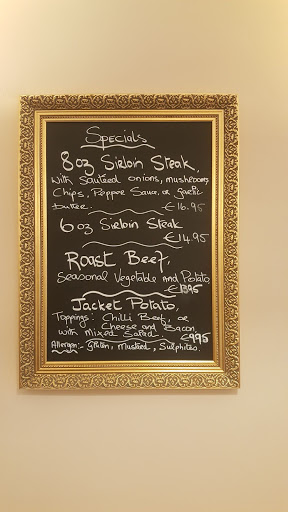 Specials
8oz Sirloin Steak,
with Sauteed onions, mushrooms
Chips, Pepper Sauce, or garlic
butter. €16.95
6oz Sirloin Steak
€14.95
Roast Beef,
Seasonal Vegetable and Potato
€13.95
Jacket Potato,
Toppings: Chilli Beef, or
Cheese and Bacon
with Mixed Salad €9.95
Allergen:- Gluten, Mustard, Sulphites.